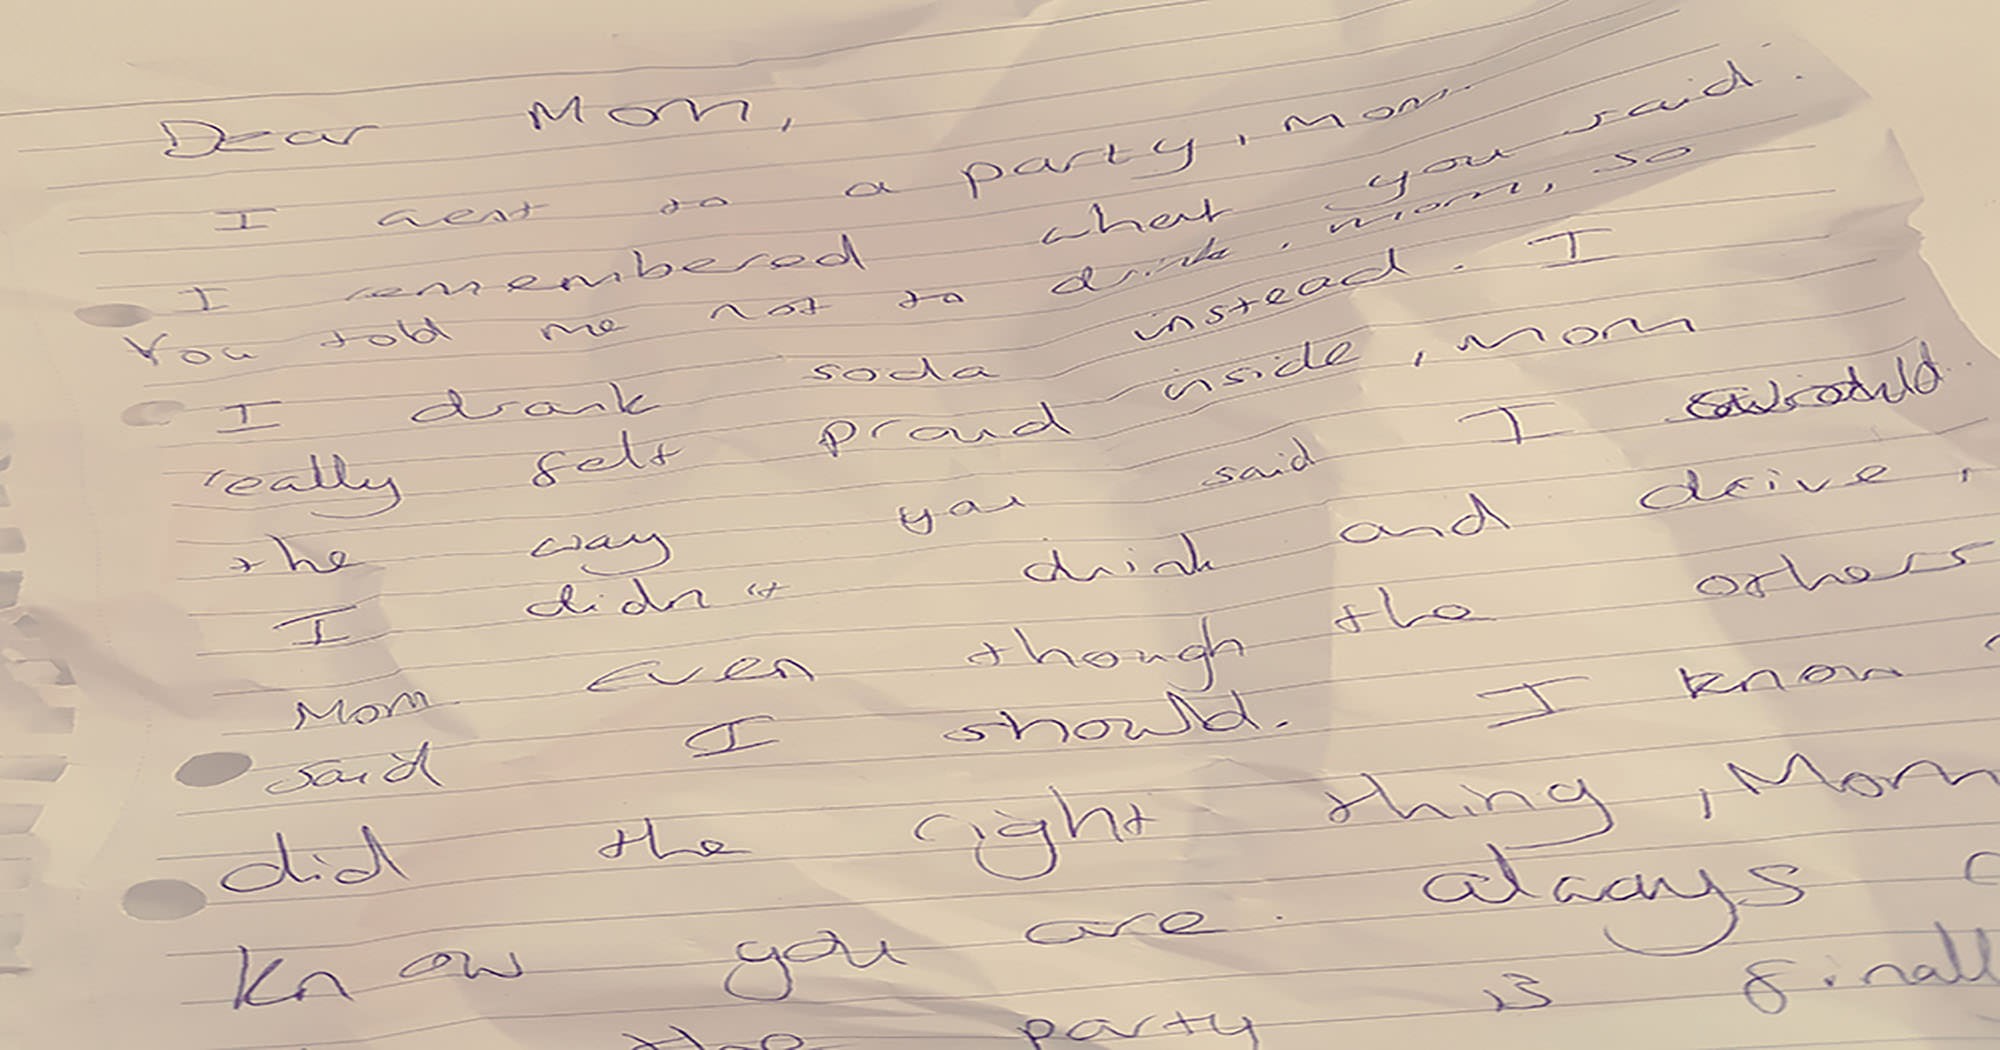 Dear Mom,
I went to a party, Mom.
I remembered what you said.
You told me not to drink, mom, so
I drank soda instead. I
really felt proud inside, mom
the way you said I would.
I didn't drink and drive,
Mom. even though the others
said I should. I know I
did the right thing, Mom
know you are always
the party is finall